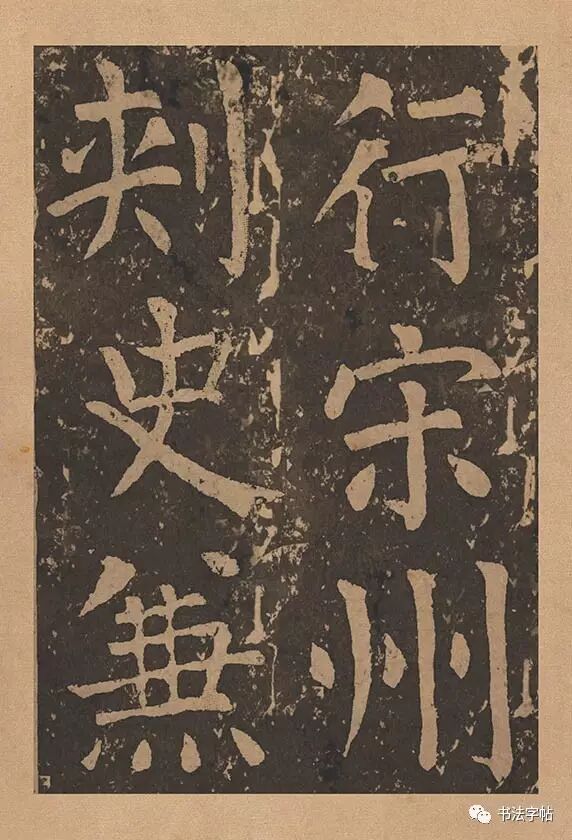 行宋州
刺史無
书法字帖